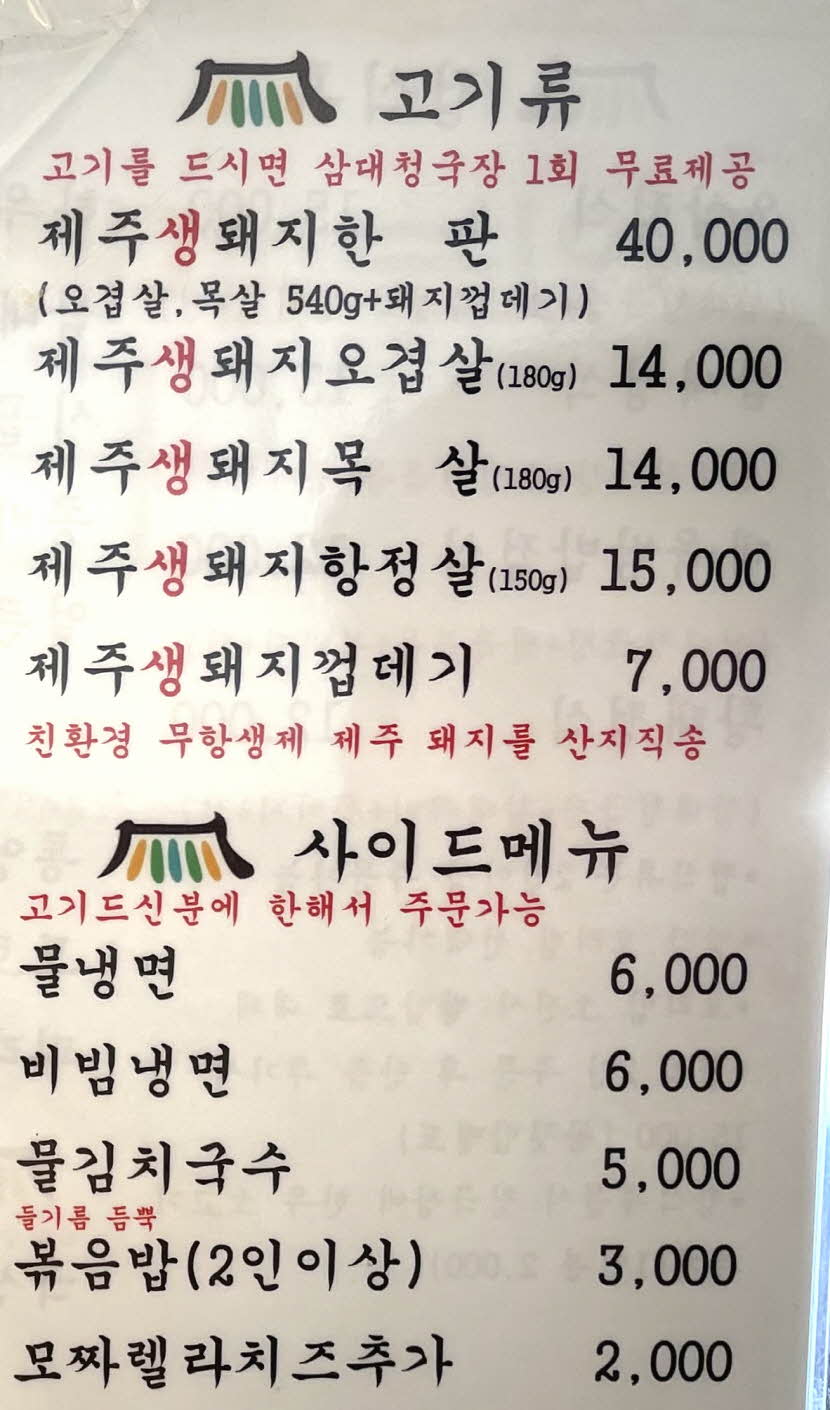 고기류
고기를 드시면 삼대청국장 1회 무료제공
제주생돼지한 판 40,000
(오겹살,목살 540g+돼지껍데기)
제주생돼지오겹살(180g) 14,000
제주생돼지목 살(180g) 14,000
제주생돼지항정살(150g) 15,000
제주생돼지껍데기 7,000
친환경 무항생제 제주 돼지를 산지직송
사이드메뉴
고기드신분에 한해서 주문가능
물냉면 6,000
비빔냉면 6,000
물김치국수 5,000
들기름 듬뿍
볶음밥(2인이상) 3,000
모짜렐라치즈추가 2,000